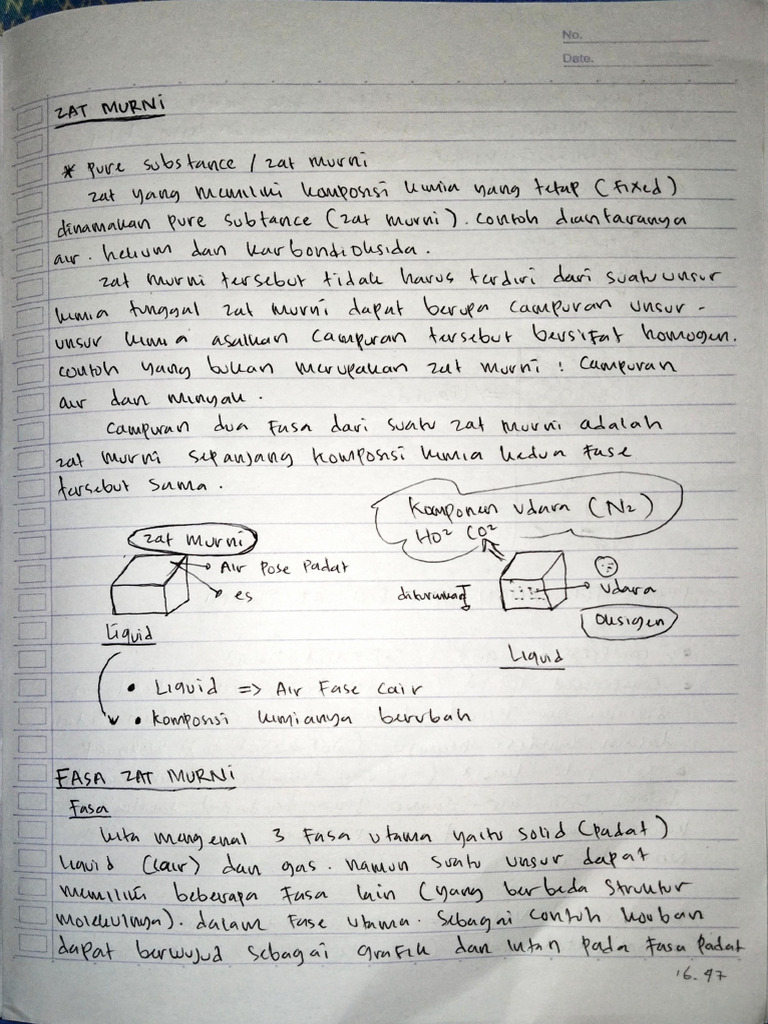 No.
Date.
ZAT MURNI
* pure substance / zat murni
zat yang memiliki komposisi kimia yang tetap (fixed)
dinamakan pure subtance (zat murni). contoh diantaranya
air. helium dan karbondioksida.
zat murni tersebut tidak harus terdiri dari suatu unsur
kimia tunggal zat murni dapat berupa campuran unsur-
unsur kimia asalkan campuran tersebut bersifat homogen.
contoh yang bukan merupakan zat murni : campuran
air dan minyak.
campuran dua fasa dari suatu zat murni adalah
zat murni sepanjang komposisi kimia kedua fase
tersebut sama.
Komponen udara (N2)
HO2 CO2
zat murni
Air pose padat
es
Liquid
diturunkan
udara
Oksigen
Liquid
• Liquid => Air Fase cair
• komposisi kimianya berubah
FASA ZAT MURNI
Fasa
kita mengenal 3 Fasa utama yaitu solid (padat)
liquid (cair) dan gas. namun suatu unsur dapat
memiliki beberapa Fasa lain (yang berbeda struktur
molekulnya). dalam Fase utama. Sebagai contoh
dapat berwujud sebagai grafik dan intan pada Fasa padat
16.47